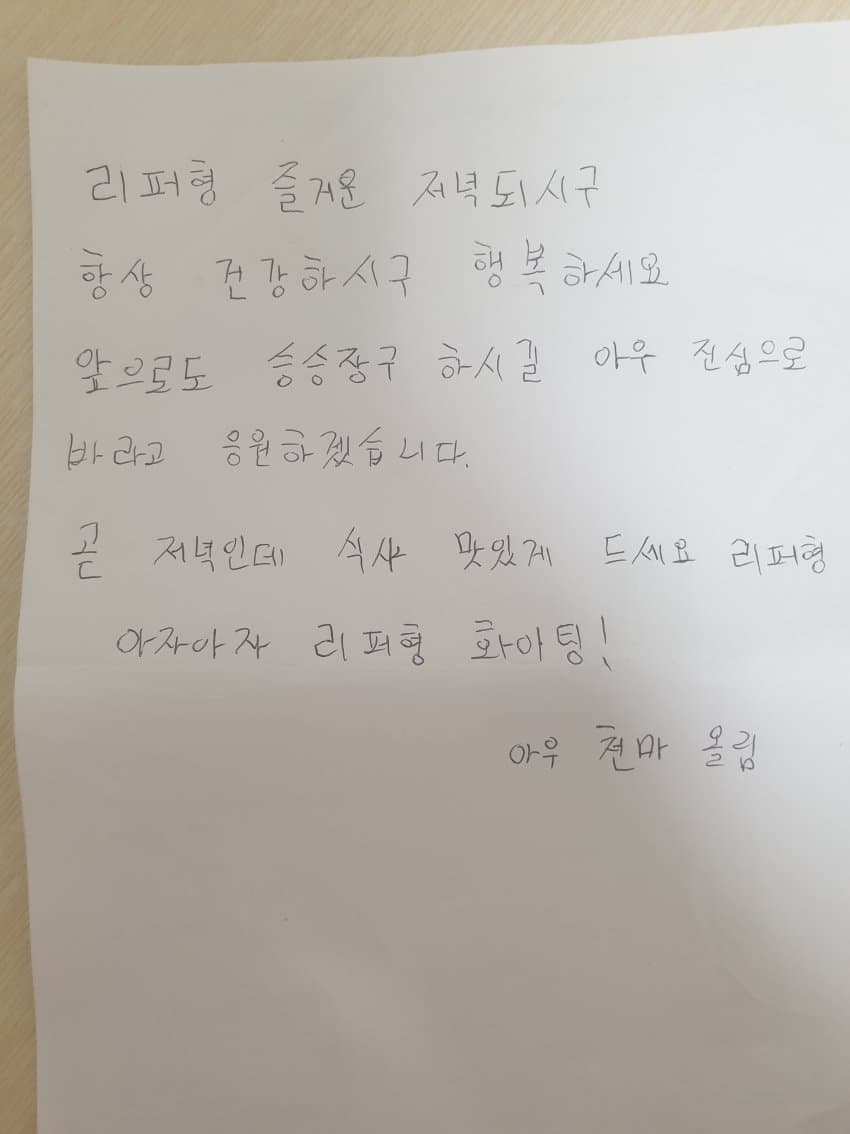 리퍼형 즐거운 저녁되시구
항상 건강하시구 행복하세요
앞으로도 승승장구 하시길 아우 진심으로
바라고 응원하겠습니다.
곧 저녁인데 식사 맛있게 드세요 리퍼형
아자아자 리퍼형 화이팅!
아우 천마 올림